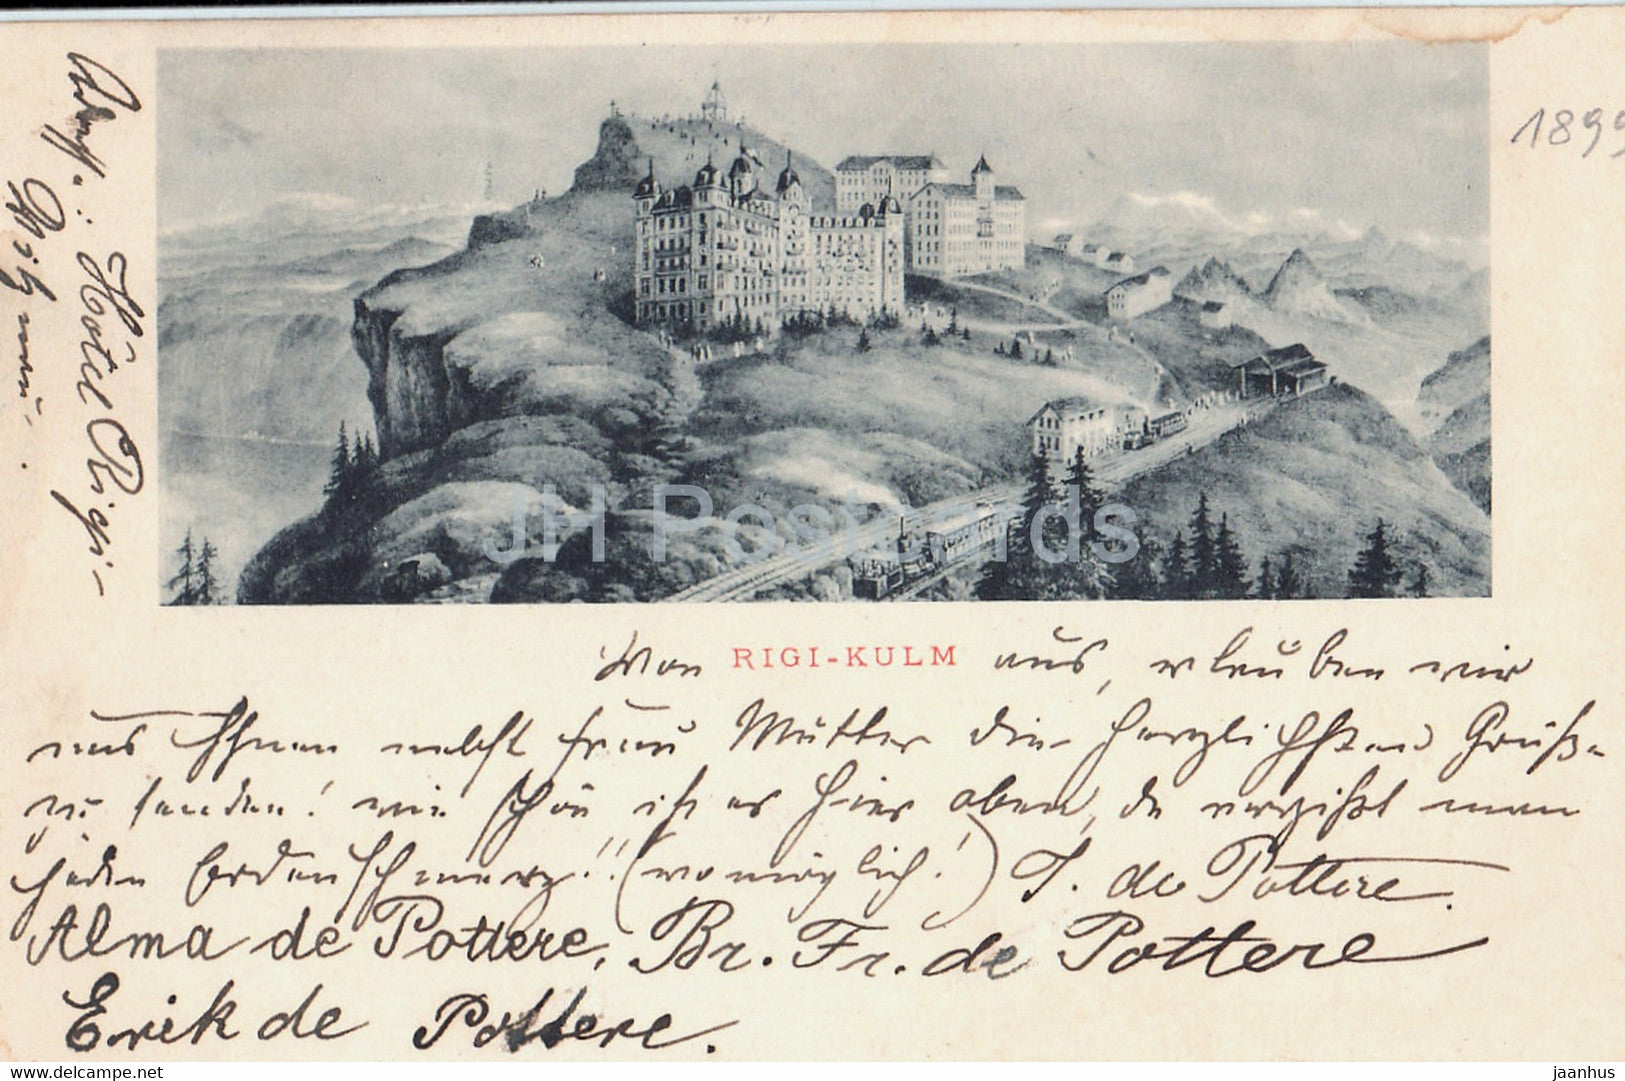 1899
Adresse: Hôtel Rigi-
Vitznau.
Von RIGI-KULM aus, erlauben wir
uns Ihnen nebst Frau Mutter die herzlichsten Grüße
zu senden! Wie schön ist es hier oben, da vergißt man
jeden Erdenschmerz!! (womöglich!) J. de Pottere.
Alma de Pottere, Br. Fr. de Pottere
Erik de Pottere.
JH Postcards
www.delcampe.net
jaanhus